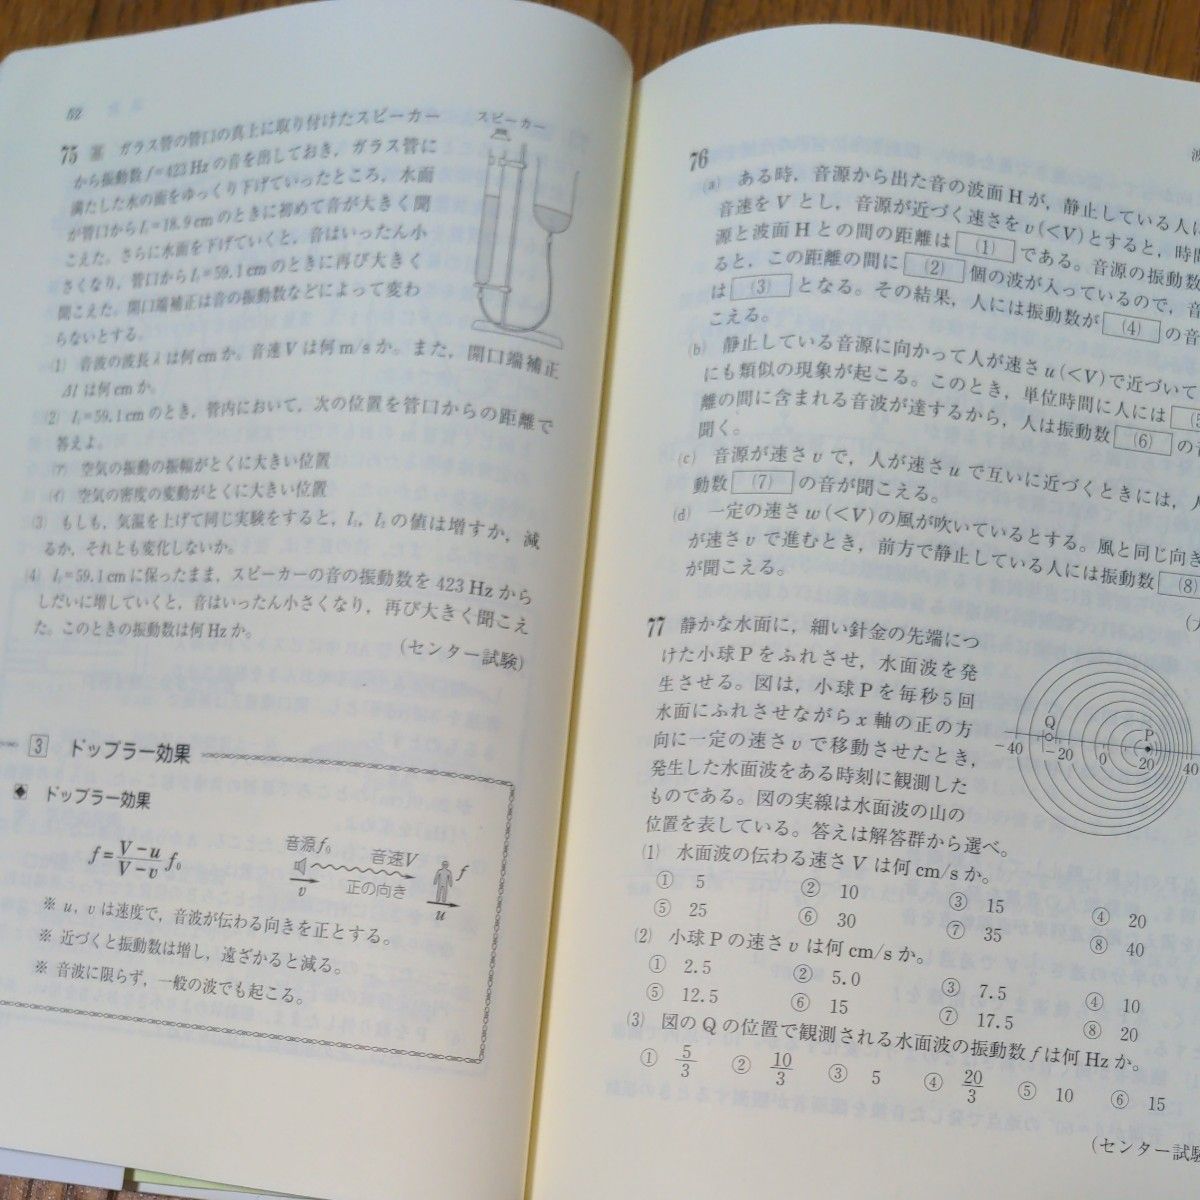 52
75 ガラス管の管口の真上に取り付けたスピーカー
から振動数f=423 Hzの音を出しておき，ガラス管に
満たした水の面をゆっくり下げていったところ，水面
が管口からl₁=18.9 cmのときに初めて音が大きく聞
こえた。さらに水面を下げていくと，音はいったん小
さくなり，管口からl₂=59.1 cmのときに再び大きく
聞こえた。開口端補正は音の振動数などによって変わ
らないとする。
スピーカー
(1) 音波の波長λは何cmか。音速Vは何m/sか。また，開口端補正
Δlは何cmか。
(2) l₂=59.1 cmのとき，管内において，次の位置を管口からの距離で
答えよ。
(ア) 空気の振動の振幅がとくに大きい位置
(イ) 空気の密度の変動がとくに大きい位置
(3) もしも，気温を上げて同じ実験をすると，l₁，l₂の値は増すか，減
るか，それとも変化しないか。
(4) l₂=59.1 cmに保ったまま，スピーカーの音の振動数を423 Hzから
しだいに増していくと，音はいったん小さくなり，再び大きく聞こえ
た。このときの振動数は何Hzか。
(センター試験)
3 ドップラー効果
◆ ドップラー効果
f=V−u/V−v f₀
音源f₀ 音速V f
v 正の向き u
※ u，vは速度で，音波が伝わる向きを正とする。
※ 近づくと振動数は増し，遠ざかると減る。
※ 音波に限らず，一般の波でも起こる。
波
76
(a) ある時，音源から出た音の波面Hが，静止している人に
音速をVとし，音源が近づく速さをv(<V)とすると，時間
源と波面Hとの間の距離は (1) である。音源の振動数
ると，この距離の間に (2) 個の波が入っているので，音
は (3) となる。その結果，人には振動数が (4) の音
こえる。
(b) 静止している音源に向かって人が速さu(<V)で近づいて
にも類似の現象が起こる。このとき，単位時間に人には (5
離の間に含まれる音波が達するから，人は振動数 (6) の音
聞く。
(c) 音源が速さvで，人が速さuで互いに近づくときには，人
動数 (7) の音が聞こえる。
(d) 一定の速さw(<V)の風が吹いているとする。風と同じ向き
が速さvで進むとき，前方で静止している人には振動数 (8)
が聞こえる。
77 静かな水面に，細い針金の先端につ
けた小球Pをふれさせ，水面波を発
生させる。図は，小球Pを毎秒5回
水面にふれさせながらx軸の正の方
向に一定の速さvで移動させたとき，
発生した水面波をある時刻に観測した
ものである。図の実線は水面波の山の
位置を表している。答えは解答群から選べ。
Q P
−40 −20 0 20 40
(1) 水面波の伝わる速さVは何cm/sか。
① 5 ② 10 ③ 15 ④ 20
⑤ 25 ⑥ 30 ⑦ 35 ⑧ 40
(2) 小球Pの速さvは何cm/sか。
① 2.5 ② 5.0 ③ 7.5 ④ 10
⑤ 12.5 ⑥ 15 ⑦ 17.5 ⑧ 20
(3) 図のQの位置で観測される水面波の振動数fは何Hzか。
① 5/3 ② 10/3 ③ 5 ④ 20/3 ⑤ 10 ⑥ 15
(センター試験